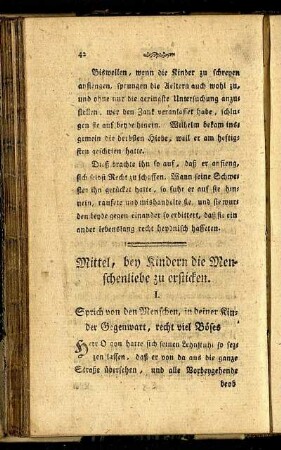 42
Bisweilen, wenn die Kinder zu schreyen
anfiengen, sprungen die Aeltern auch wohl zu,
und ohne nur die geringste Untersuchung anzu-
stellen, wer den Zank veranlasset habe, schlu-
gen sie auf beyde hinein. Wilhelm bekam ins-
gemein die derbsten Hiebe, weil er am heftig-
sten geschrien hatte.
Dieß brachte ihn so auf, daß er anfieng,
sich selbst Recht zu schaffen. Wann seine Schwe-
ster ihn gerücket hatte, so fuhr er auf sie hin-
nein, raufete und mishandelte sie, und sie wur-
den beyde gegen einander so erbittert, daß sie ein-
ander lebenslang recht heydnisch hasseten.
Mittel, bey Kindern die Men-
schenliebe zu ersticken.
I.
Sprich von den Menschen, in deiner Kin-
der Gegenwart, recht viel Böses
Herr O gon hatte sich seinen Lehnstuhl so se-
zen lassen, daß er von da aus die ganze
Straße übersehen, und alle Vorbeygehende
beob